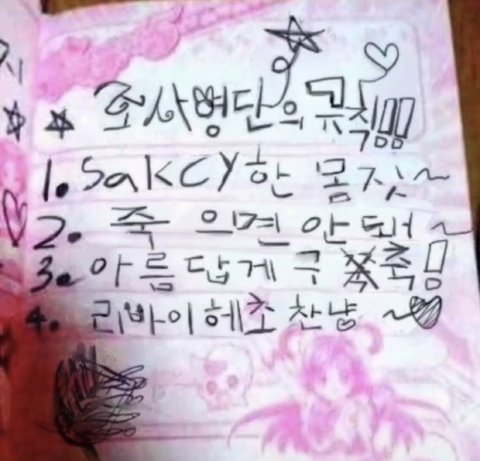 조사병단의 규칙!!!
1. SakCy한 몸짓~
2. 죽 으면 안 돼 ~
3. 아름답게 구축!
4. 리바이헤초 찬냥 ~